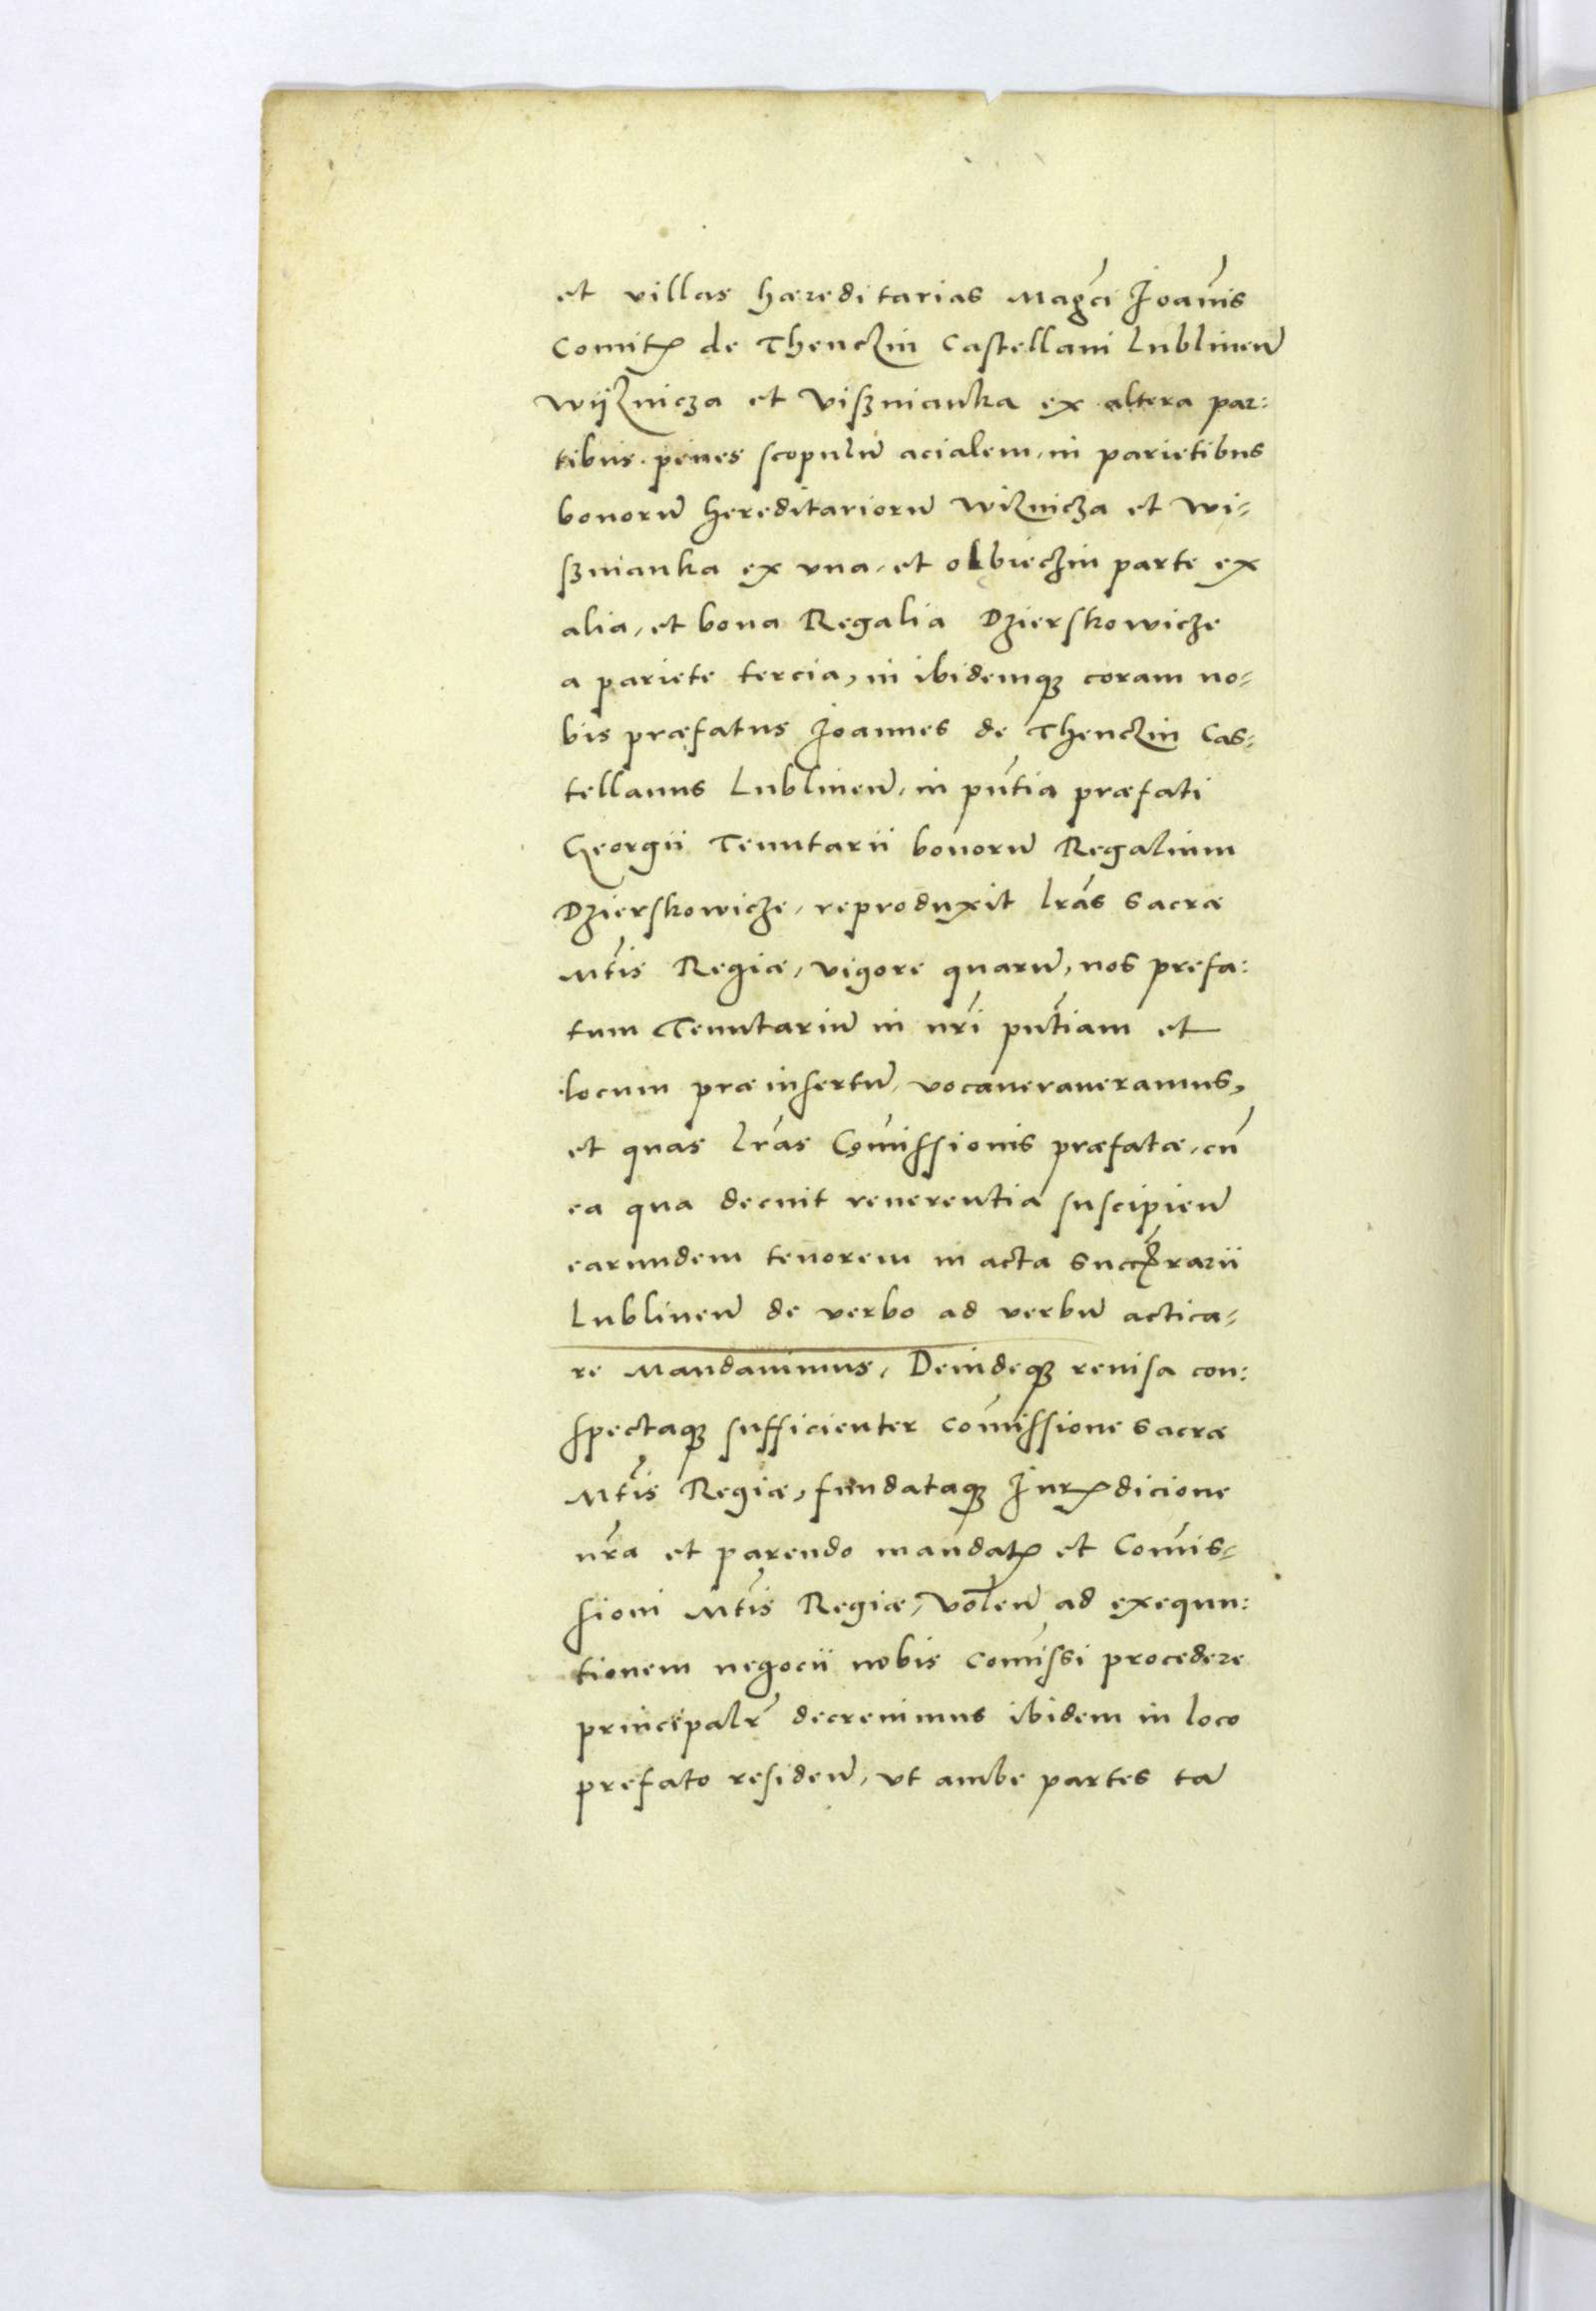 et villas hæreditarias Magci Joānis
Comitꝭ de Thenczin Castellani Lublineñ
Wijznicza et Visznianka ex altera par:
tibus penes scopulū acialem, in parietibus
bonorū hereditariorū Wiznicza et Wi-
sznianka ex vna, et olbieczin parte ex
alia, et bona Regalia Dzierskowicze
a pariete tercia, in ibidemqꝫ coram no-
bis præfatus Joannes de Thenczin Cas-
tellanus Lublineñ, in pn̄tia præfati
Georgii Tenutarii bonorū Regalium
Dzierskowicze, reproduxit lr̄as Sacræ
Mtis Regiæ, vigore quarū, nos prefa:
tum Tenutariū in nr̄i pn̄tiam et
locum præinsertū, vocaueraueramus,
et quas lr̄as Com̄issionis præfatæ, cū
ea qua decuit reuerentia suscipieñ
earundem tenorem in acta Succꝑrarii
Lublineñ de verbo ad verbū actica-
re Mandauimus, Deindeqꝫ reuisa con:
spectaqꝫ sufficienter com̄issione Sacræ
Mtis Regiæ, fundataqꝫ Jurꝭdicione
nr̄a et parendo mandatꝭ et Com̄is-
sioni Mtis Regiæ, Voleñ ad exequu:
tionem negocii nobis com̄issi procedere
principalr̄ decreuimus ibidem in loco
prefato resideñ, vt ambe partes tā